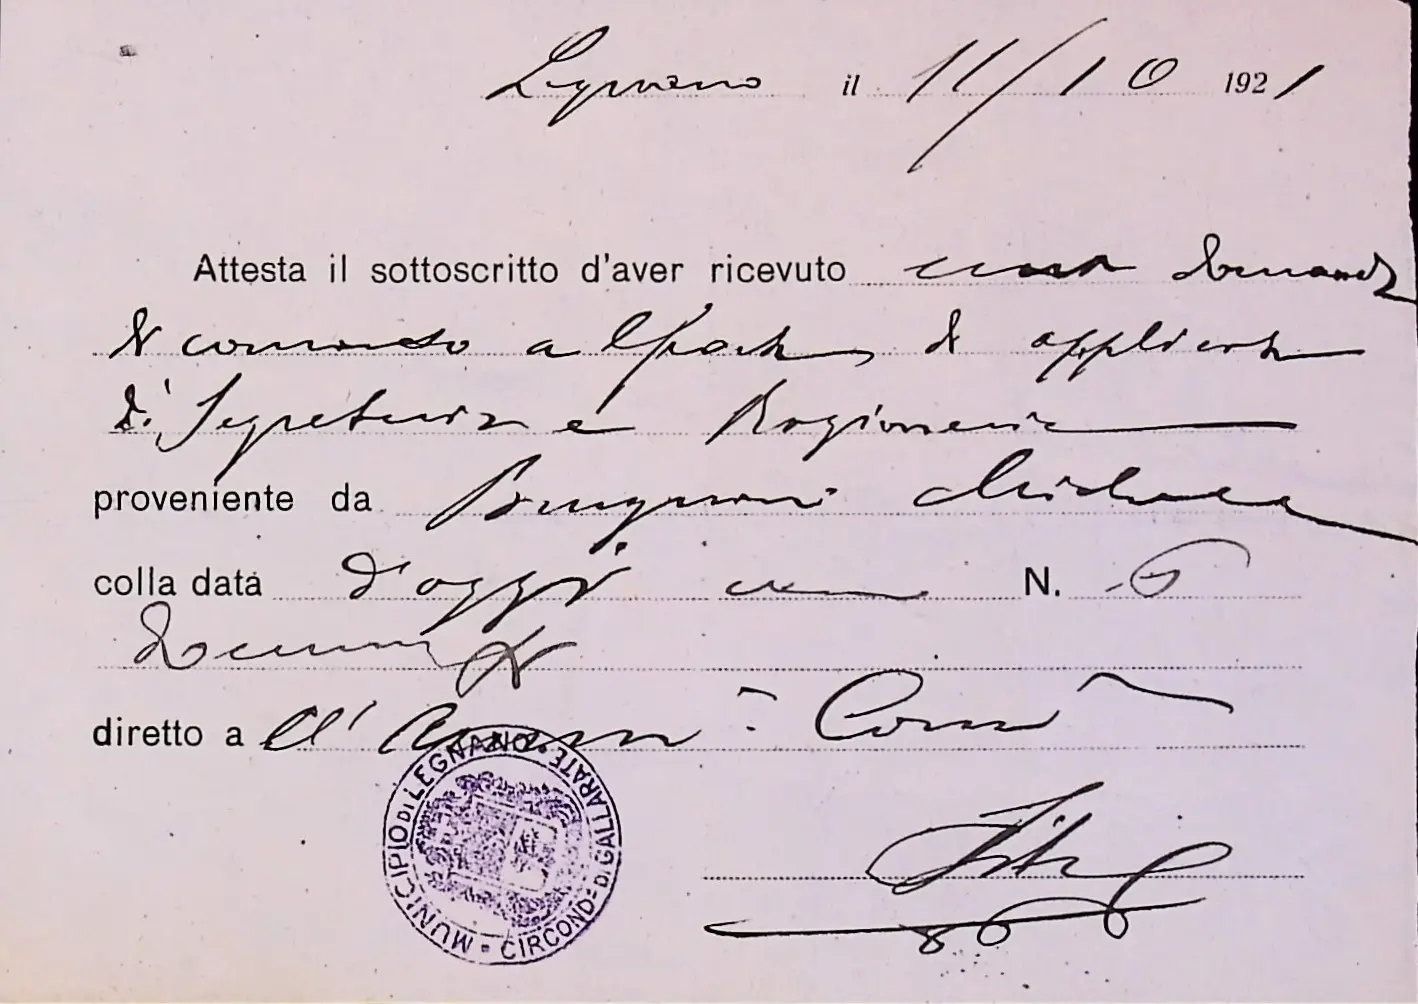 Legnano il 11/10 1921
Attesta il sottoscritto d'aver ricevuto una domanda
di concorso al posto di applicato
di Segreteria e Ragioneria
proveniente da
colla data d'oggi con N. 6
diretto all' Com
MUNICIPIO DI LEGNANO CIRCOND= DI GALLARATE